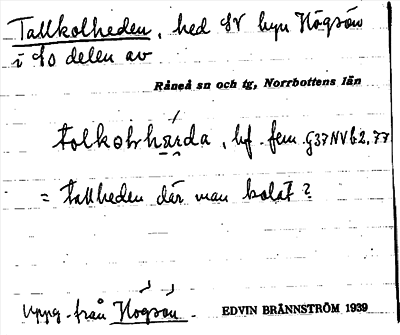 Tallkolheden, hed SV byn Högsön
i SO delen av
Råneå sn och tg, Norrbottens län
tolkolrhärda, bf. fem. G37NVb2,77
= tallheden där man kolat?
Uppg. från Högsön. EDVIN BRÄNNSTRÖM 1939